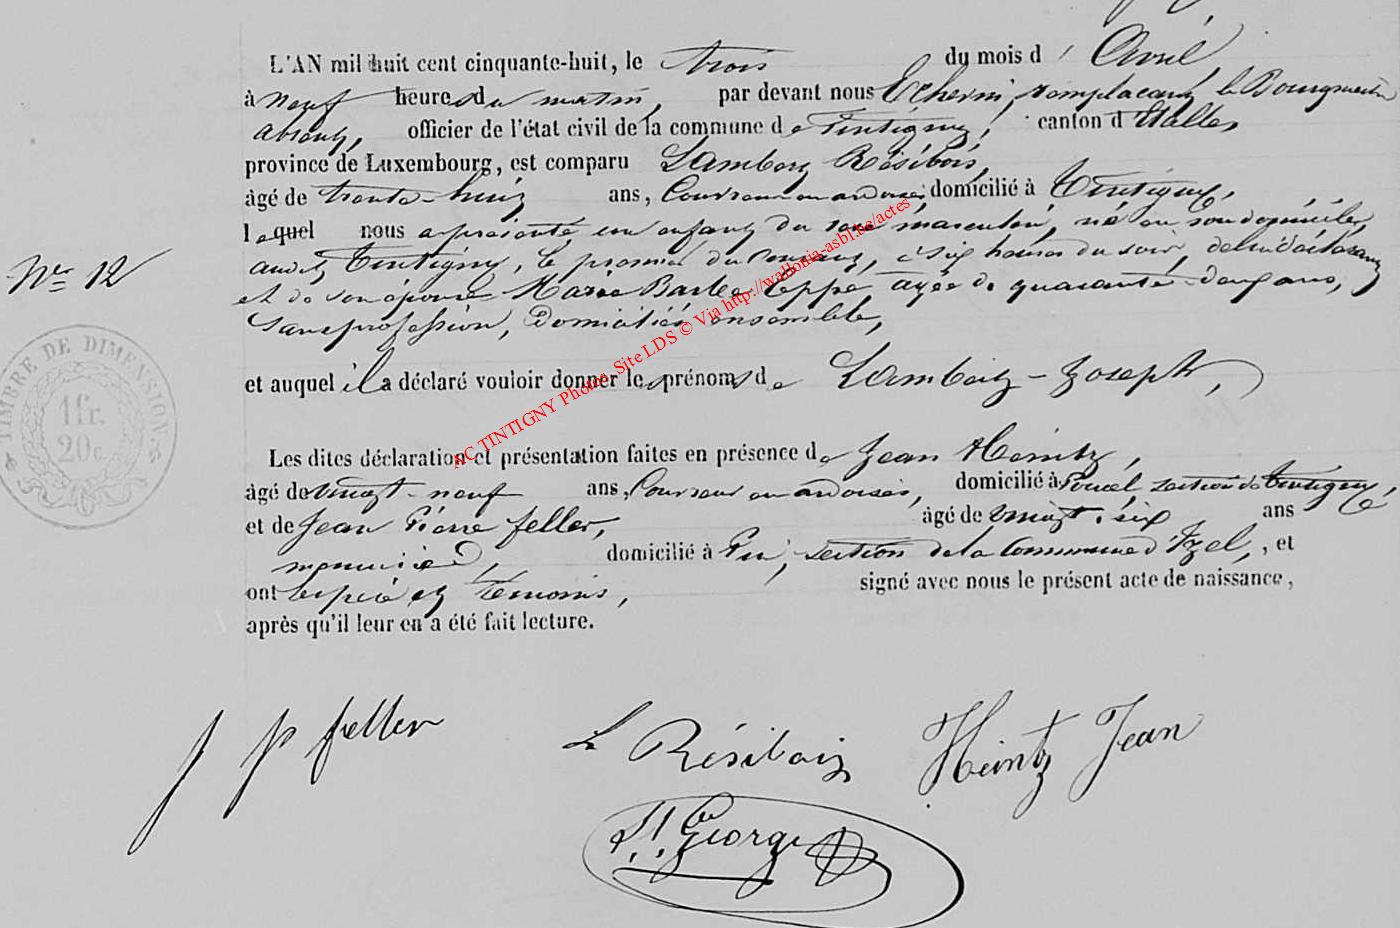 L'AN mil huit cent cinquante-huit, le trois du mois d' Avril,
à neuf heures du matin, par devant nous Echevin, remplacant le Bourgmestre
absent, officier de l'état civil de la commune de Tintigny, canton d'Etalle,
province de Luxembourg, est comparu Lambert Résibois,
âgé de trente-huit ans, Couvreur en ardoises, domicilié à Tintigny,
lequel nous a présenté un enfant du sexe masculin, né en son domicile,
audit Tintigny, le premier du courant, à six heures du soir, de lui déclarant
et de son épouse Marie Barbe agée de quarante-deux ans,
sans profession, domiciliés ensemble,
et auquel il a déclaré vouloir donner les prénoms de Lambert-Joseph,
Les dites déclaration et présentation faites en présence de Jean Heintz,
âgé de vingt-neuf ans, Couvreur en ardoises, domicilié à Poncel, section de Tintigny,
et de Jean Pierre feller, âgé de vingt-six ans
menuisier, domicilié à Pin, section de la Commune d'Izel, et
ont les père et témoins, signé avec nous le présent acte de naissance,
après qu'il leur en a été fait lecture.
Nº 12
TIMBRE DE DIMENSION
1 fr.
20 c.
AC TINTIGNY Photos Site LDS © Via http://wallonia-asbl.be/actes
J p feller
L Résibois
Heintz Jean
George